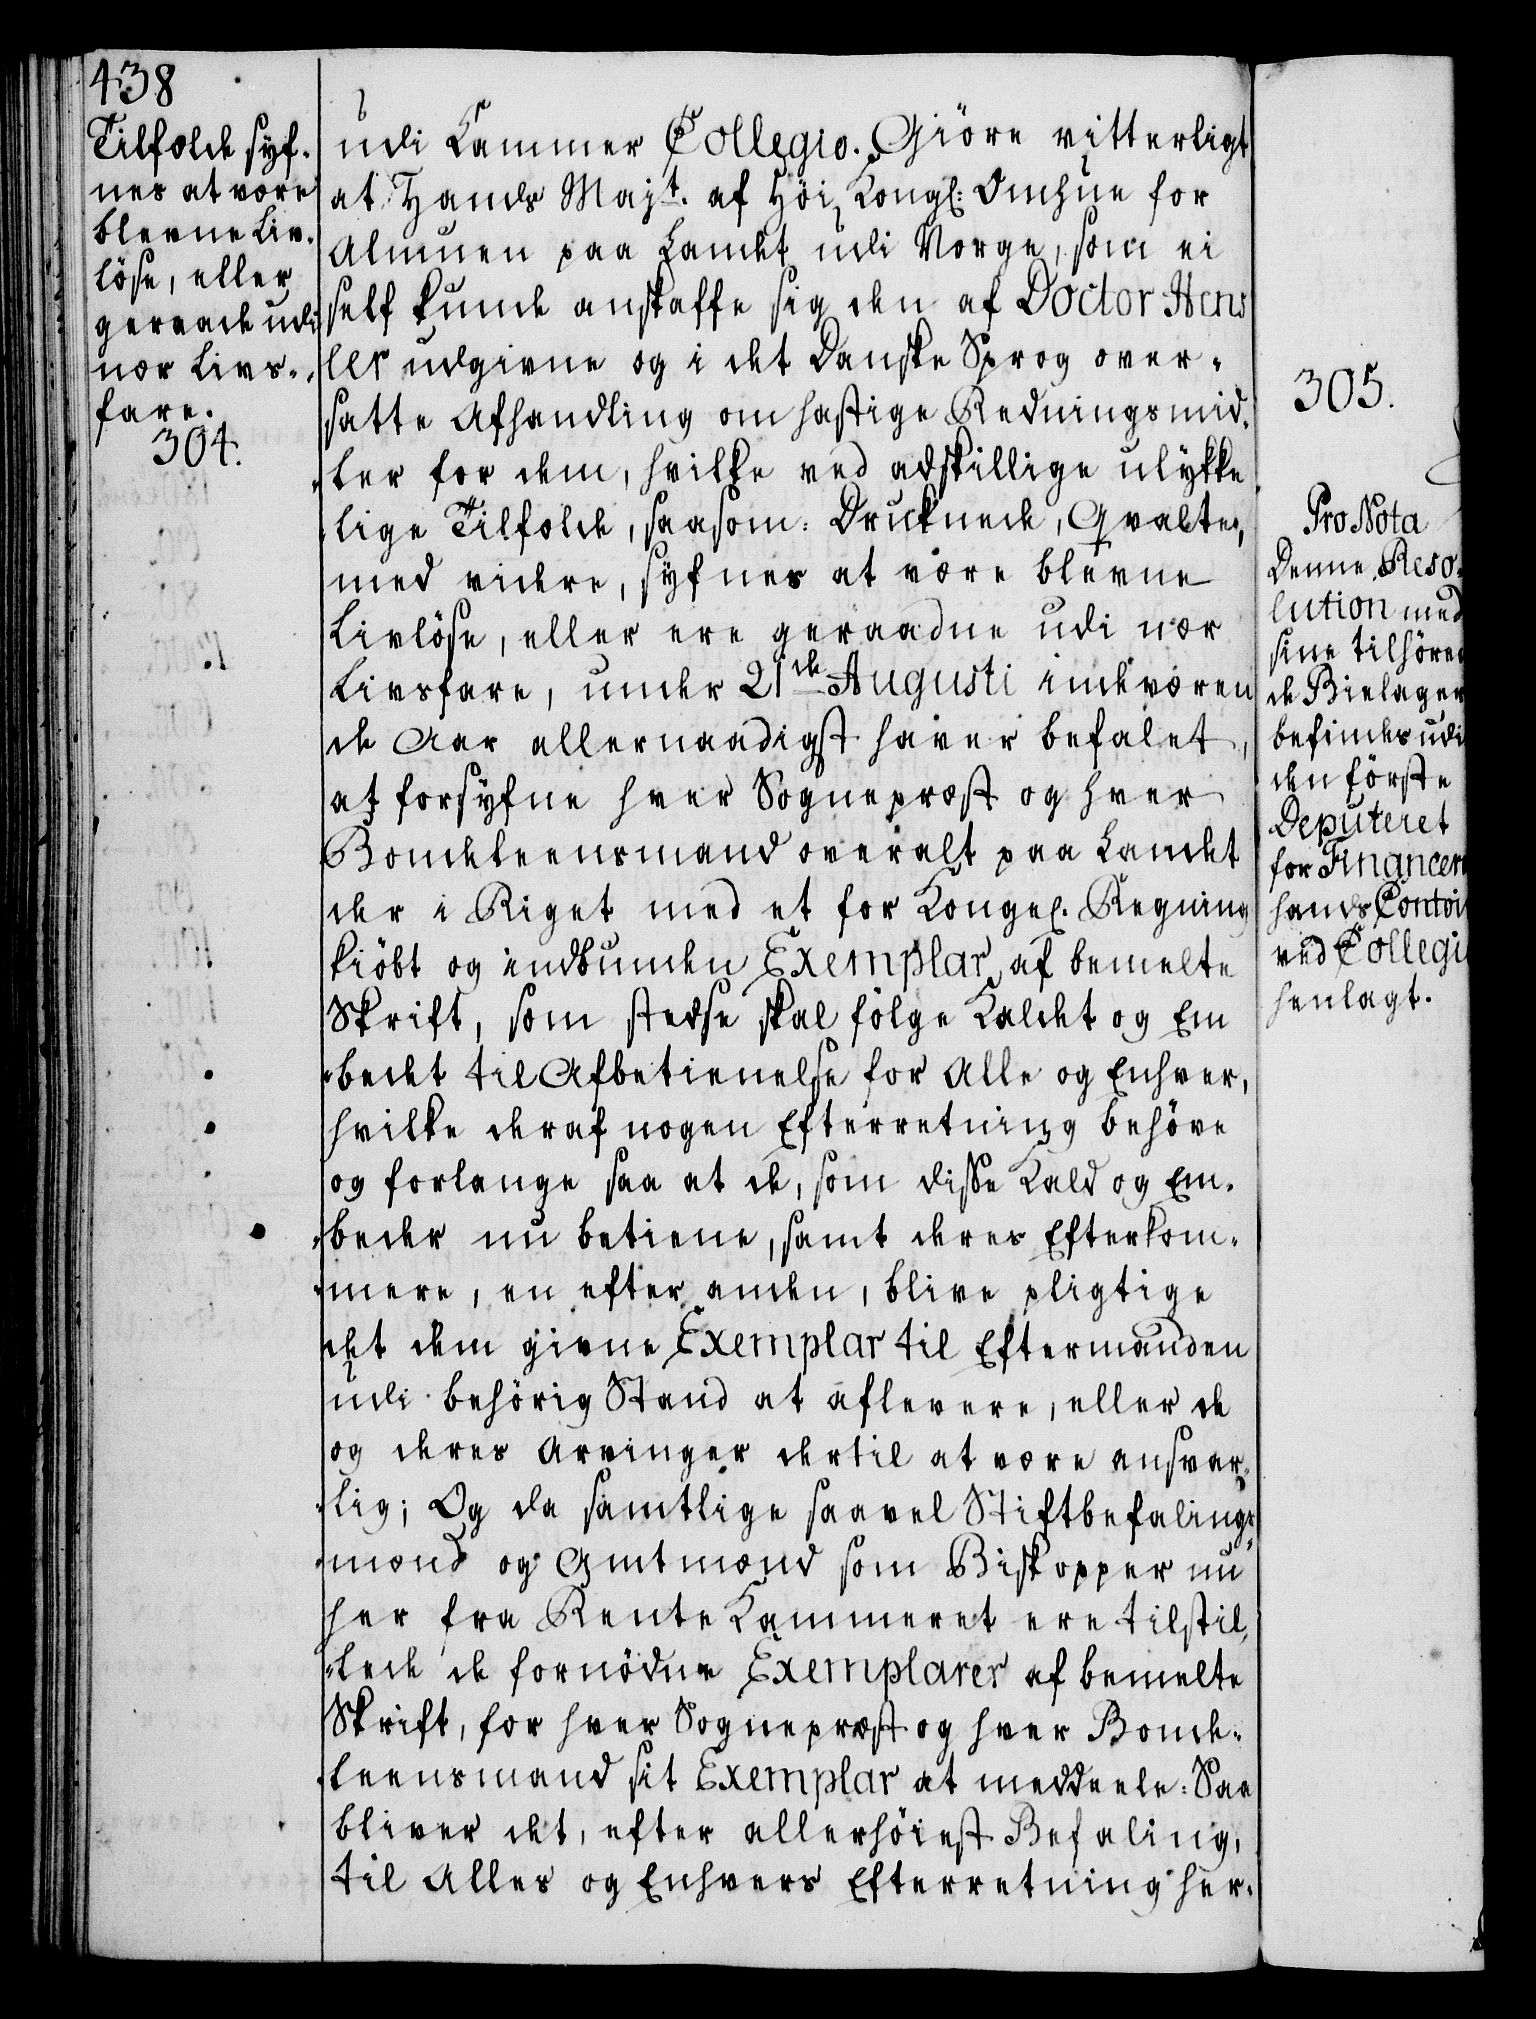 438
Tilfælde syf-
nes at være
blevne Liv-
löse, eller
geraade udi
nær Livs-
fare.
304.
udi Cammer Collegio. Giöre vitterligt
at Hands Majt. af Höi Kongl: Omhue for
Almuen paa Landet udi Norge, som ei
self kunde anskaffe sig den af Doctor Hens
ler udgivne og i det Danske Sprog over-
satte Afhandling om hastige Redningsmid-
ler for dem, hvilke ved adskillige ulykke
lige Tilfælde, saasom: Druknede, Qvalte,
med videre, syfnes at være blevne
Livlöse, eller ere geraadne udi nær
Livsfare, under 21de Augusti indeværen
de Aar allernaadigst haver befalet,
at forsyfne hver Sognepræst og hver
Bondeleensmand overalt paa Landet
der i Riget med et for Kongel. Regning
kiöbt og indbunden Exemplar af bemelte
Skrift, som stedse skal fölge Kaldet og Em
bedet til Afbetienelse for Alle og Enhver,
hvilke deraf nogen Efterretning behöve
og forlange saa at de, som disse Kald og Em-
beder nu betiene, samt deres Efterkom-
mere, en efter anden, blive pligtige
det dem givne Exemplar til Eftermanden
udi behörig Stand at aflevere, eller de
og deres Arvinger dertil at være ansvar-
lig; Og da samtlige saavel Stiftbefalings
mænd og Amtmænd som Biskopper nu
her fra Rente Kammeret ere tilstil-
lede de fornödne Exemplarer af bemelte
Skrift, for hver Sognepræst og hver Bonde-
leensmand sit Exemplar at meddeele: Saa
bliver det, efter allerhöiest Befaling,
til Alles og Enhvers Efterretning her-
305.
Pro Nota
Denne Reso-
lution med
sine tilhören
de Bielager
befindes udi
den förste
Deputeret
for Financern
hands Contoi
ved Collegi
henlagt.